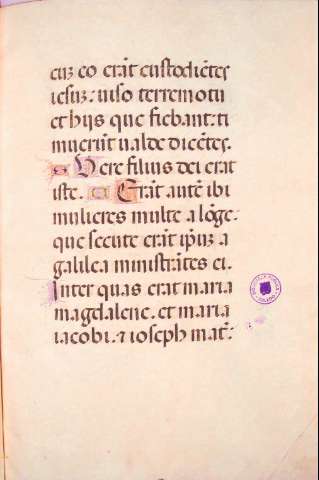 euʒ eo erāt custodiētes
iesuʒ: uiso terremotu
et hijs que fiebant: ti
muerūt ualde dicētes.
Vere filius dei erat
iste. Erāt autē ibi
mulieres multe a lōge:
que secute erāt ip̄uʒ a
galilea ministrātes ei.
Inter quas erat maria
magdalene. et maria
iacobi. ⁊ ioseph mat̄: